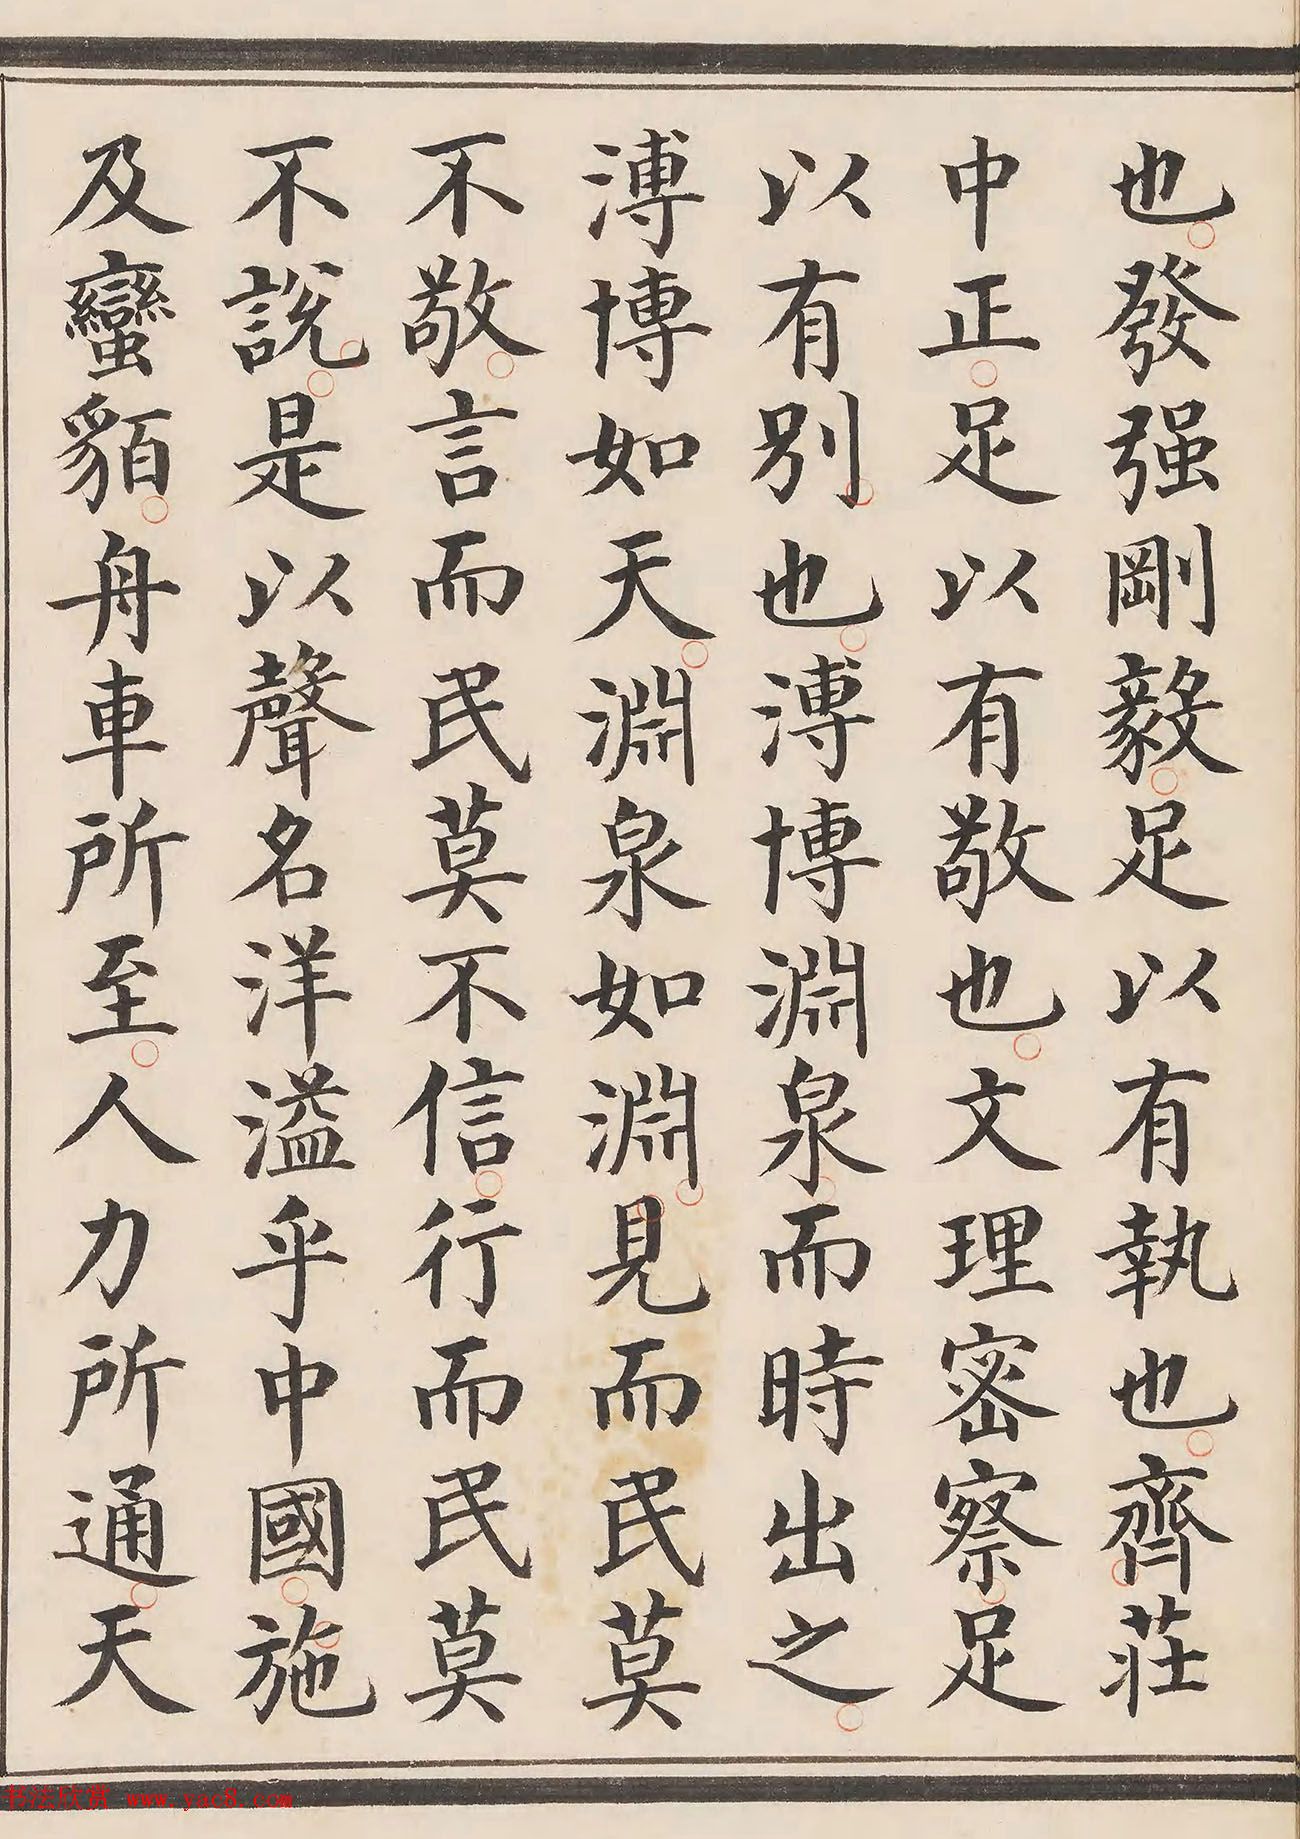 也發强剛毅足以有執也齊莊
中正足以有敬也文理密察足
以有別也溥博淵泉而時出之
溥博如天淵泉如淵見而民莫
不敬言而民莫不信行而民莫
不說是以聲名洋溢乎中國施
及蠻貊舟車所至人力所通天
书法欣赏 www.yac8.com